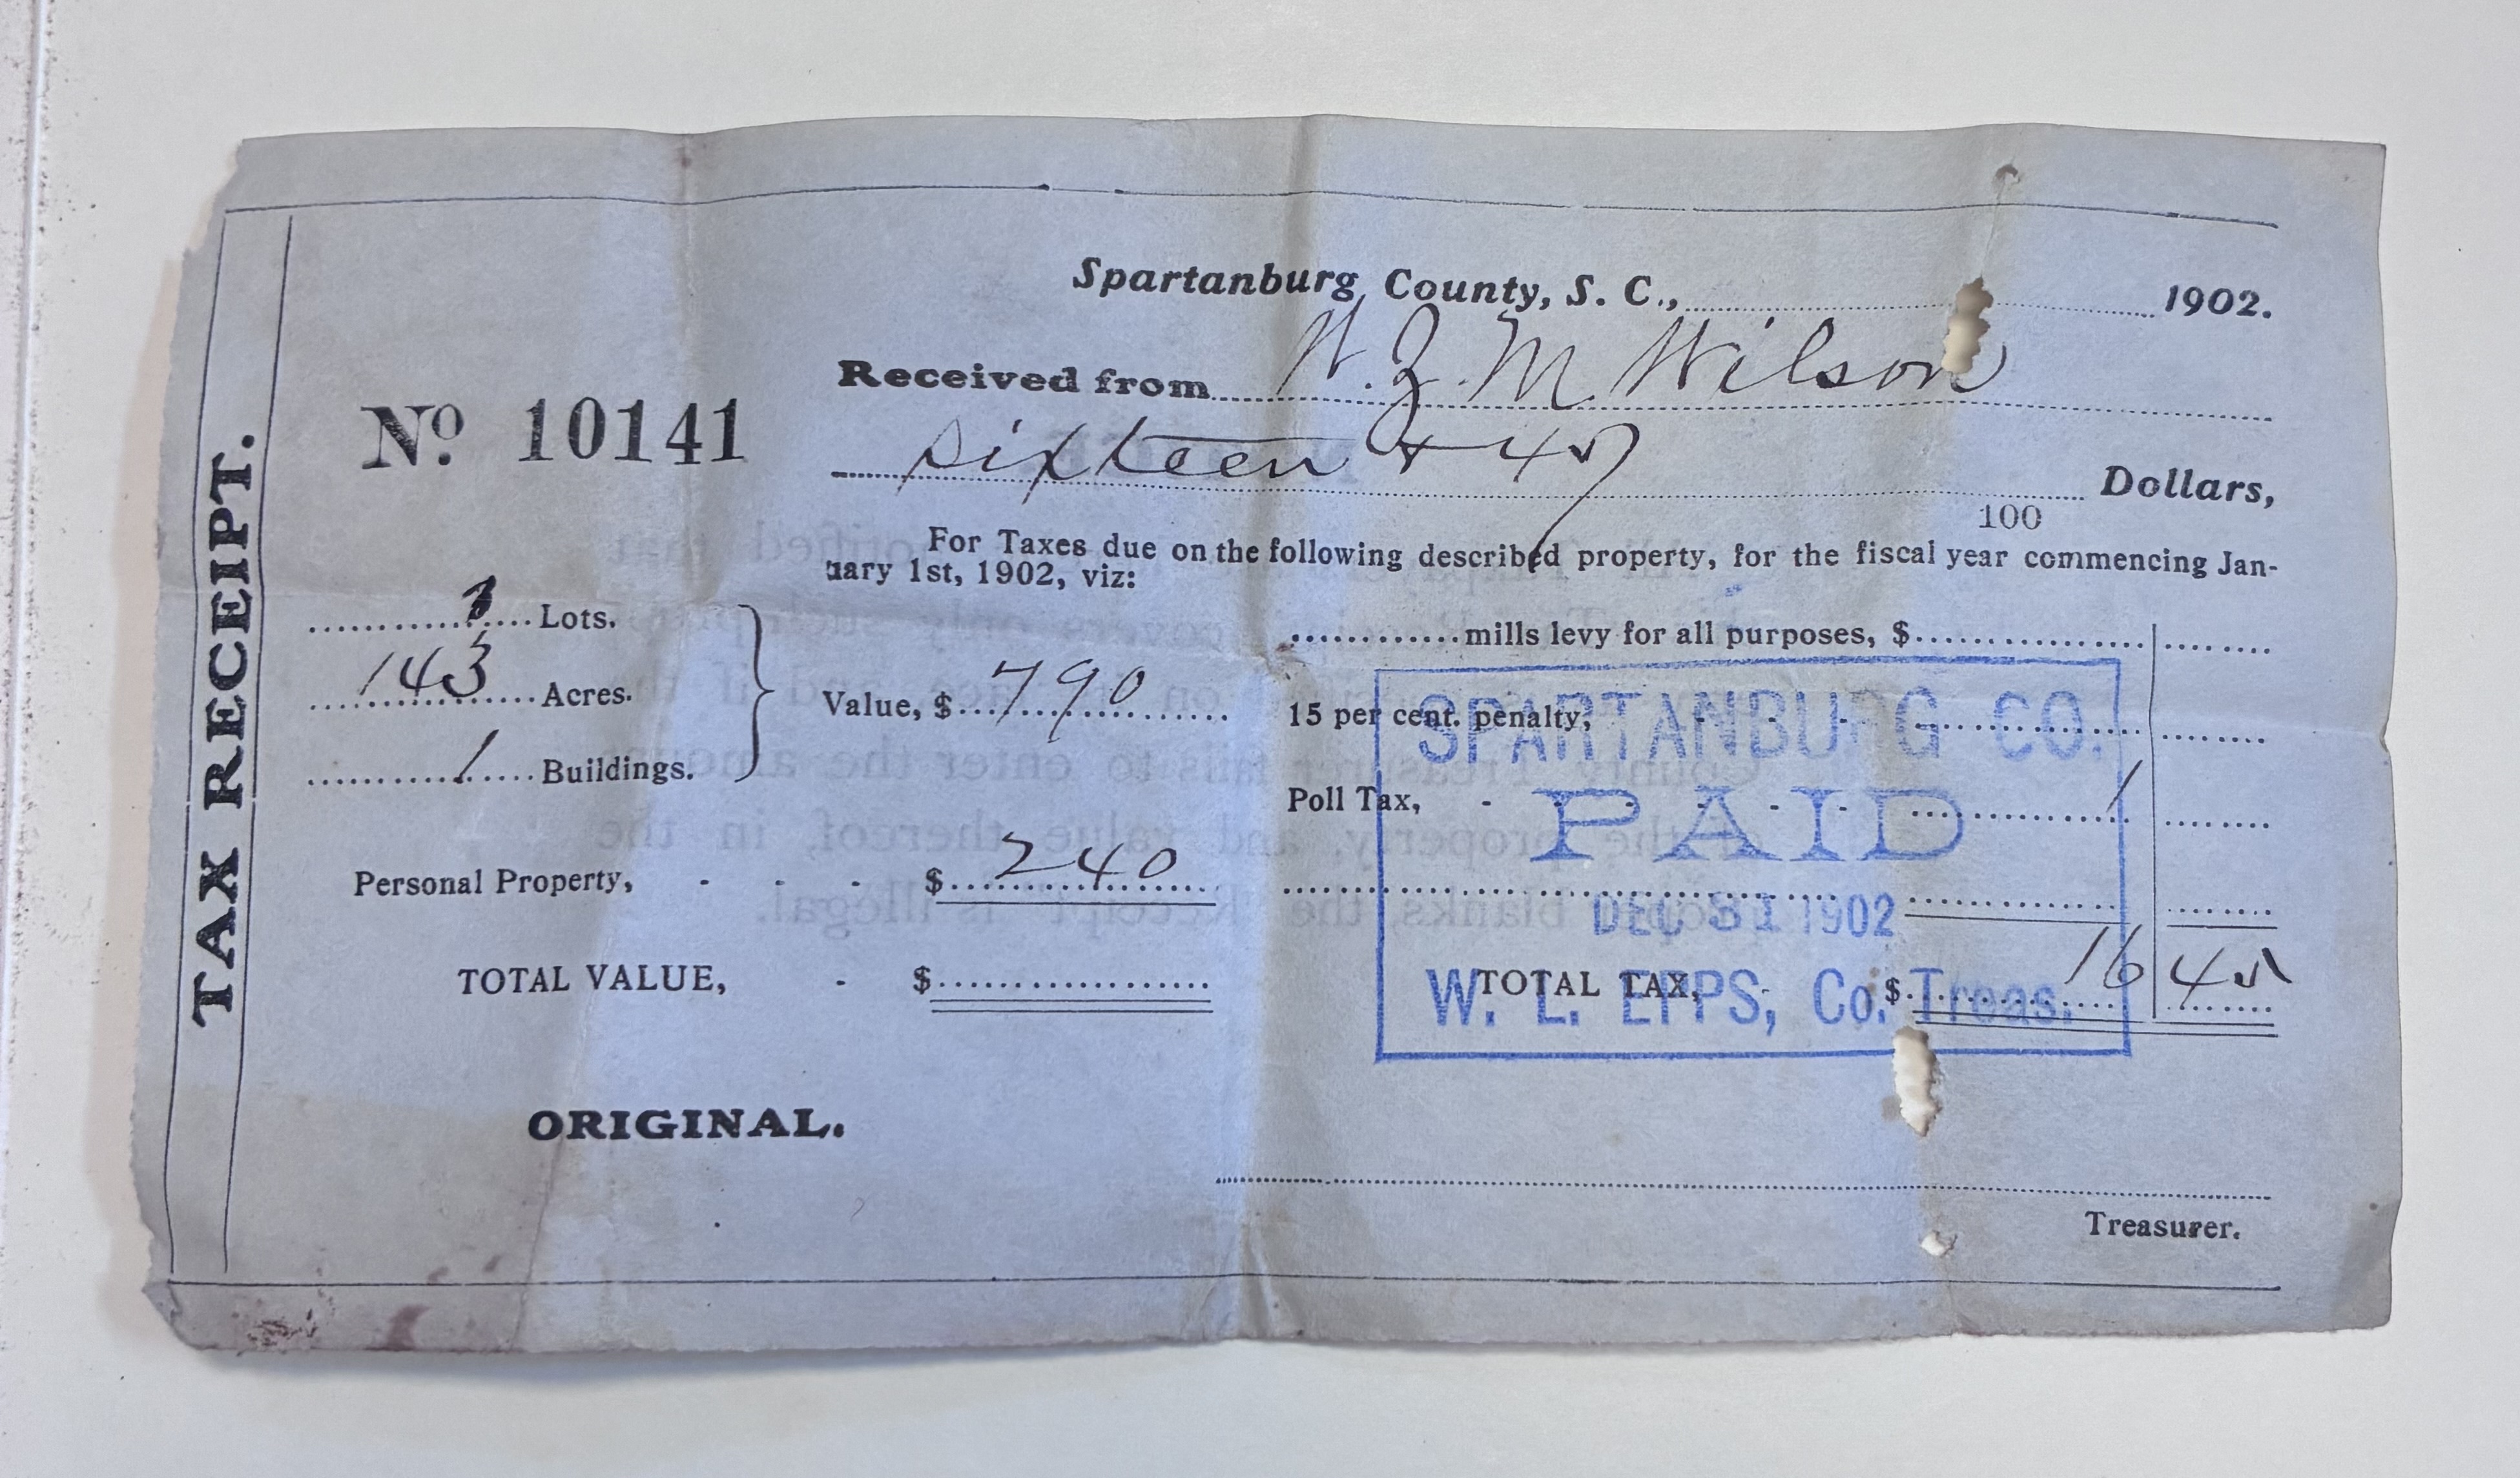 TAX RECEIPT.
Spartanburg County, S. C., 1902.
Received from W. Z. M. Wilson
No. 10141
sixteen + 45 Dollars,
100
For Taxes due on the following described property, for the fiscal year commencing Jan-
uary 1st, 1902, viz:
Lots.
143 Acres.
1 Buildings.
Value, $ 790
Personal Property, - - - $ 240
TOTAL VALUE, - $
mills levy for all purposes, $
15 per cent. penalty,
Poll Tax, - - - - - 1
TOTAL TAX, - $ 16 45
SPARTANBURG CO.
PAID
DEC 31 1902
W. L. EPPS, Co. Treas.
ORIGINAL.
Treasurer.